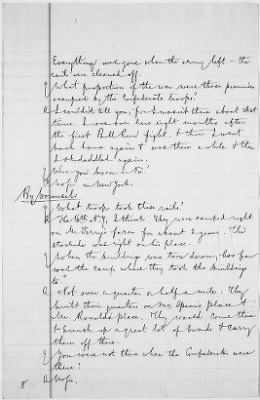 Everything was gone when the army left - the
rails were cleared off.
Q What proportion of the war were these premises
occupied by the Confederate troops?
A I couldn't tell you; for I wasn't there about that
time. I was over here eight months after
the first Bull Run fight, & then I went
back home again & was there a while & then
I skedaddled again.
Q Were you
A No, in New York.
By Counsel:
Q What troops took those rails?
A The 16th N.Y., I think. They were camped right
on Mr. Terry's farm for about 2 years. This
stockade was right on his place.
Q When the building was torn down, how far
was the camp where they took the buildings
to"
A Not over a quarter or half a mile. They
built their quarters on Mr. place &
Mr. place. They would come there
& bunch up a great lot of boards & carry
them off there.
Q You was not there when the Confederates were
there?
8 A No, s.